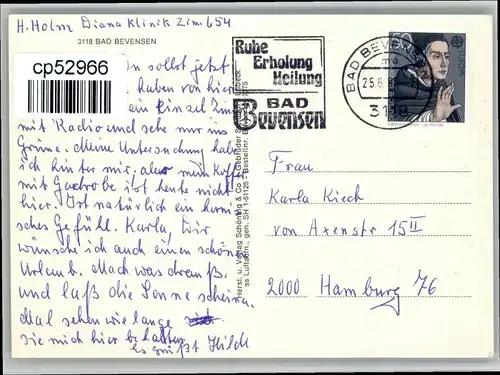 H. Holm Diana Klinik Zim. 654
3118 BAD BEVENSEN
cp52966
sollst jetzt
haben von hier
ein Einzel Zim
mit Radio und sehe nur ins
Grüne. Meine Untersuchung habe
ich hinter mir, aber mein Koffer
mit Gardrobe ist heute nicht
hier. Ist natürlich ein komi
sches Gefühl. Karla, Dir
wünsche ich auch einen schönen
Urlaub. Mach was drauß.
und laß die Sonne scheinen.
Mal sehen wie lange
sie mich hier behalten
Es grüßt Hilde
Ruhe
Erholung
Heilung
BAD
Bevensen
BAD BEVENSEN
ma
25.6.8
3118
50
EUROPA
Herst. u. Verlag Schöning & Co + Gebrüder Schmidt
Luftaufn., gen. SH 1-51125 Bestellnr.
Frau
Karla Kiech
von Axenstr 15 II
2000 Hamburg 76